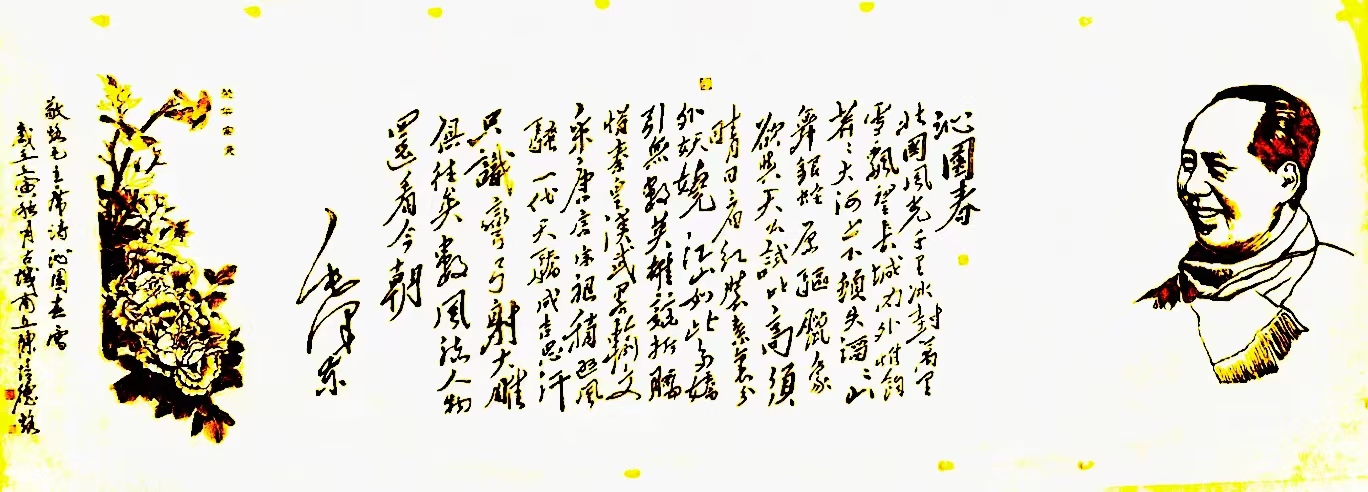 沁園春
北國風光千里冰封萬里
雪飄望長城内外惟餘
莽々大河上下頓失滔々山
舞銀蛇原驅臘象
欲與天公試比高須
晴日看紅裝素裹分
外妖嬈江山如此多嬌
引無數英雄競折腰
惜秦皇漢武略輸文
采唐宗宋祖稍遜風
騷一代天驕成吉思汗
只識彎弓射大雕
俱往矣數風流人物
還看今朝
毛澤東
敬錄毛主席詩沁園春雪
寅秋月古城南